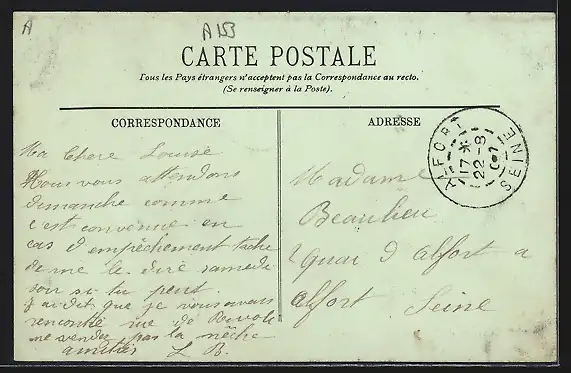 A
A 153
CARTE POSTALE
Tous les Pays étrangers n'acceptent pas la Correspondance au recto.
(Se renseigner à la Poste).
CORRESPONDANCE
Ma Chere Louise
Nous vous attendons
dimanche comme
c'est convenue en
cas d'empêchement tache
de me le dire samedi
soir si tu peus.
J'ai dit que je vous avais
rencontré rue de Rivoli
ne vendez pas la mêche
amitiés L B.
ADRESSE
ALFORT
17 *
22 -8
07
SEINE
Madame
Beaulieu
2 quai d alfort a
alfort Seine